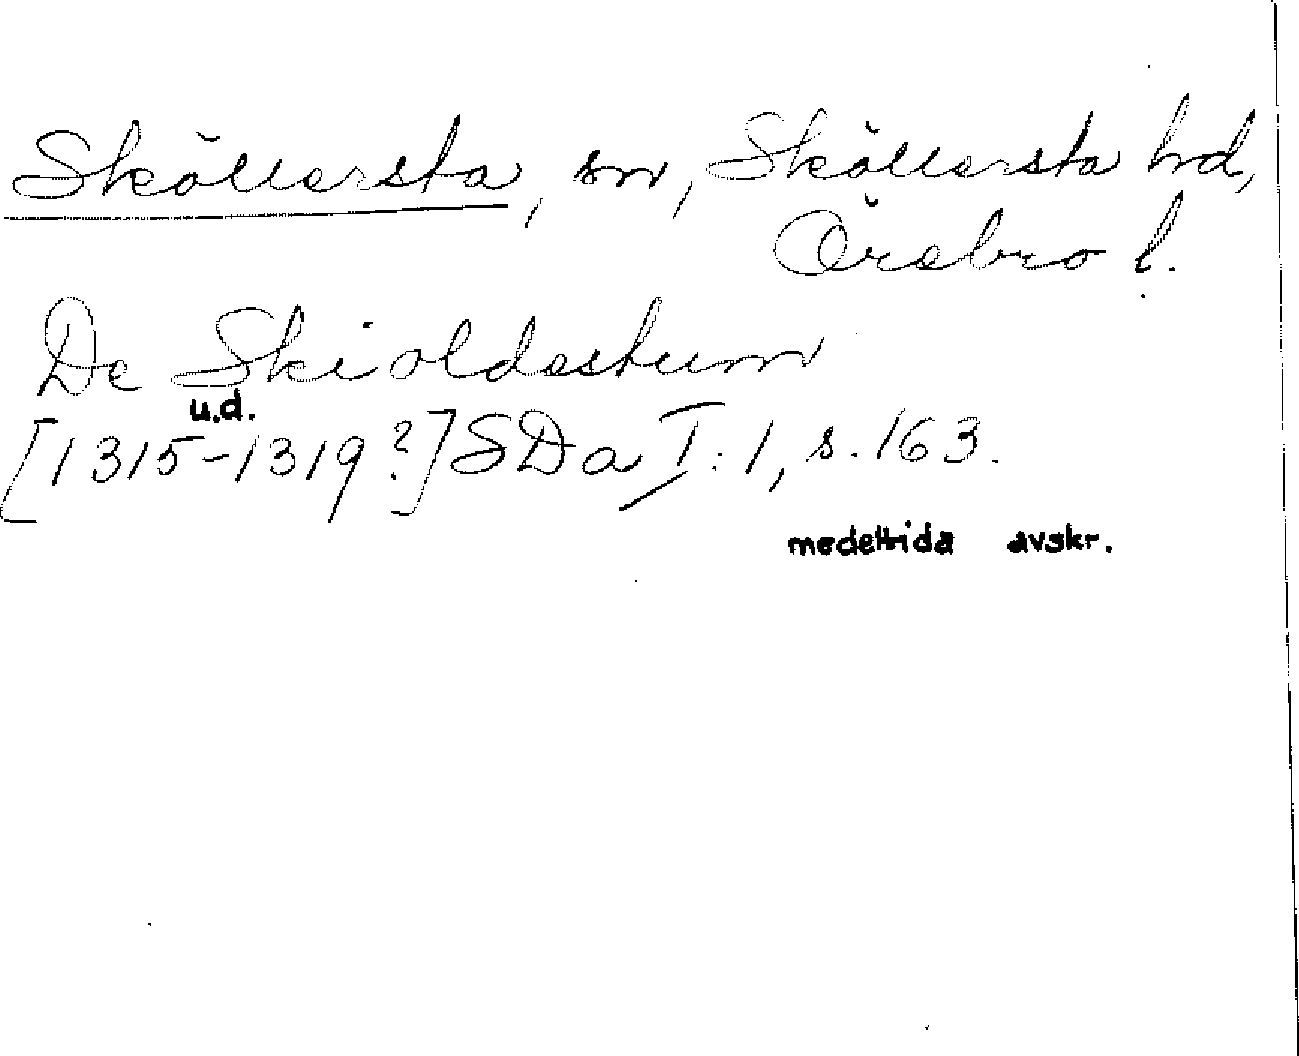 Sköllersta, sn, Sköllersta hd,
Örebro l.
De Skioldastum
u.d.
[1315-1319?] SDa I:1, s. 163.
medeltida avskr.